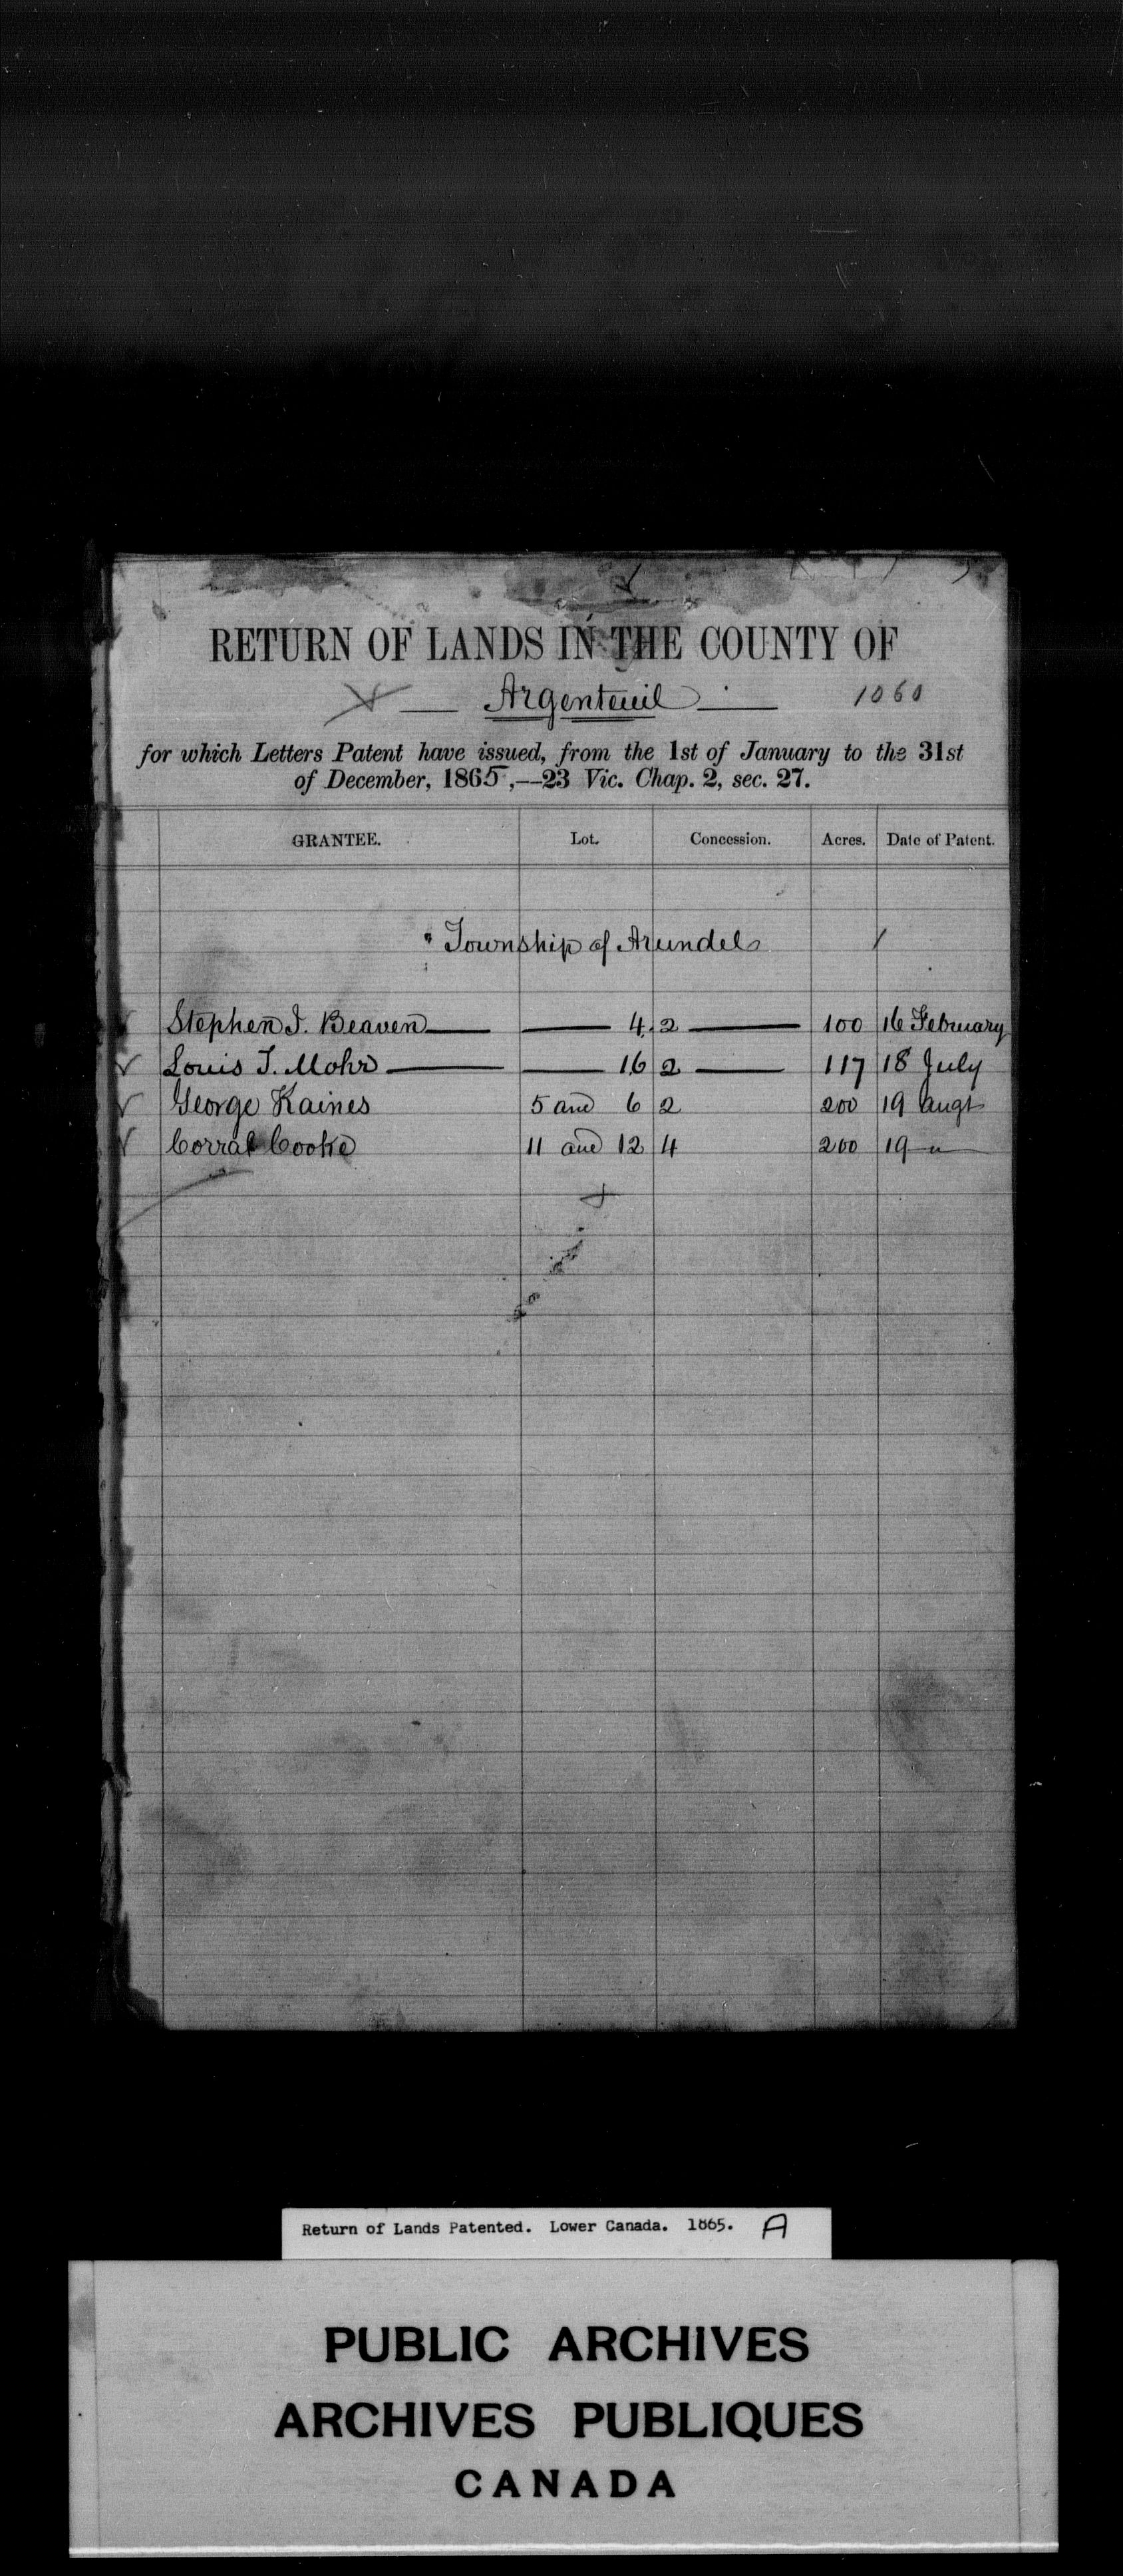 RETURN OF LANDS IN THE COUNTY OF
Argenteuil 1060
for which Letters Patent have issued, from the 1st of January to the 31st
of December, 1865,—23 Vic. Chap. 2, sec. 27.
GRANTEE. Lot. Concession. Acres. Date of Patent.
Township of Arundel
Stephen J. Beaven 4 2 100 16 February
Louis T. Mohr 16 2 117 18 July
George Kaines 5 and 6 2 200 19 augt
Corral Cooke 11 and 12 4 200 19 "
Return of Lands Patented. Lower Canada. 1865. A
PUBLIC ARCHIVES
ARCHIVES PUBLIQUES
CANADA